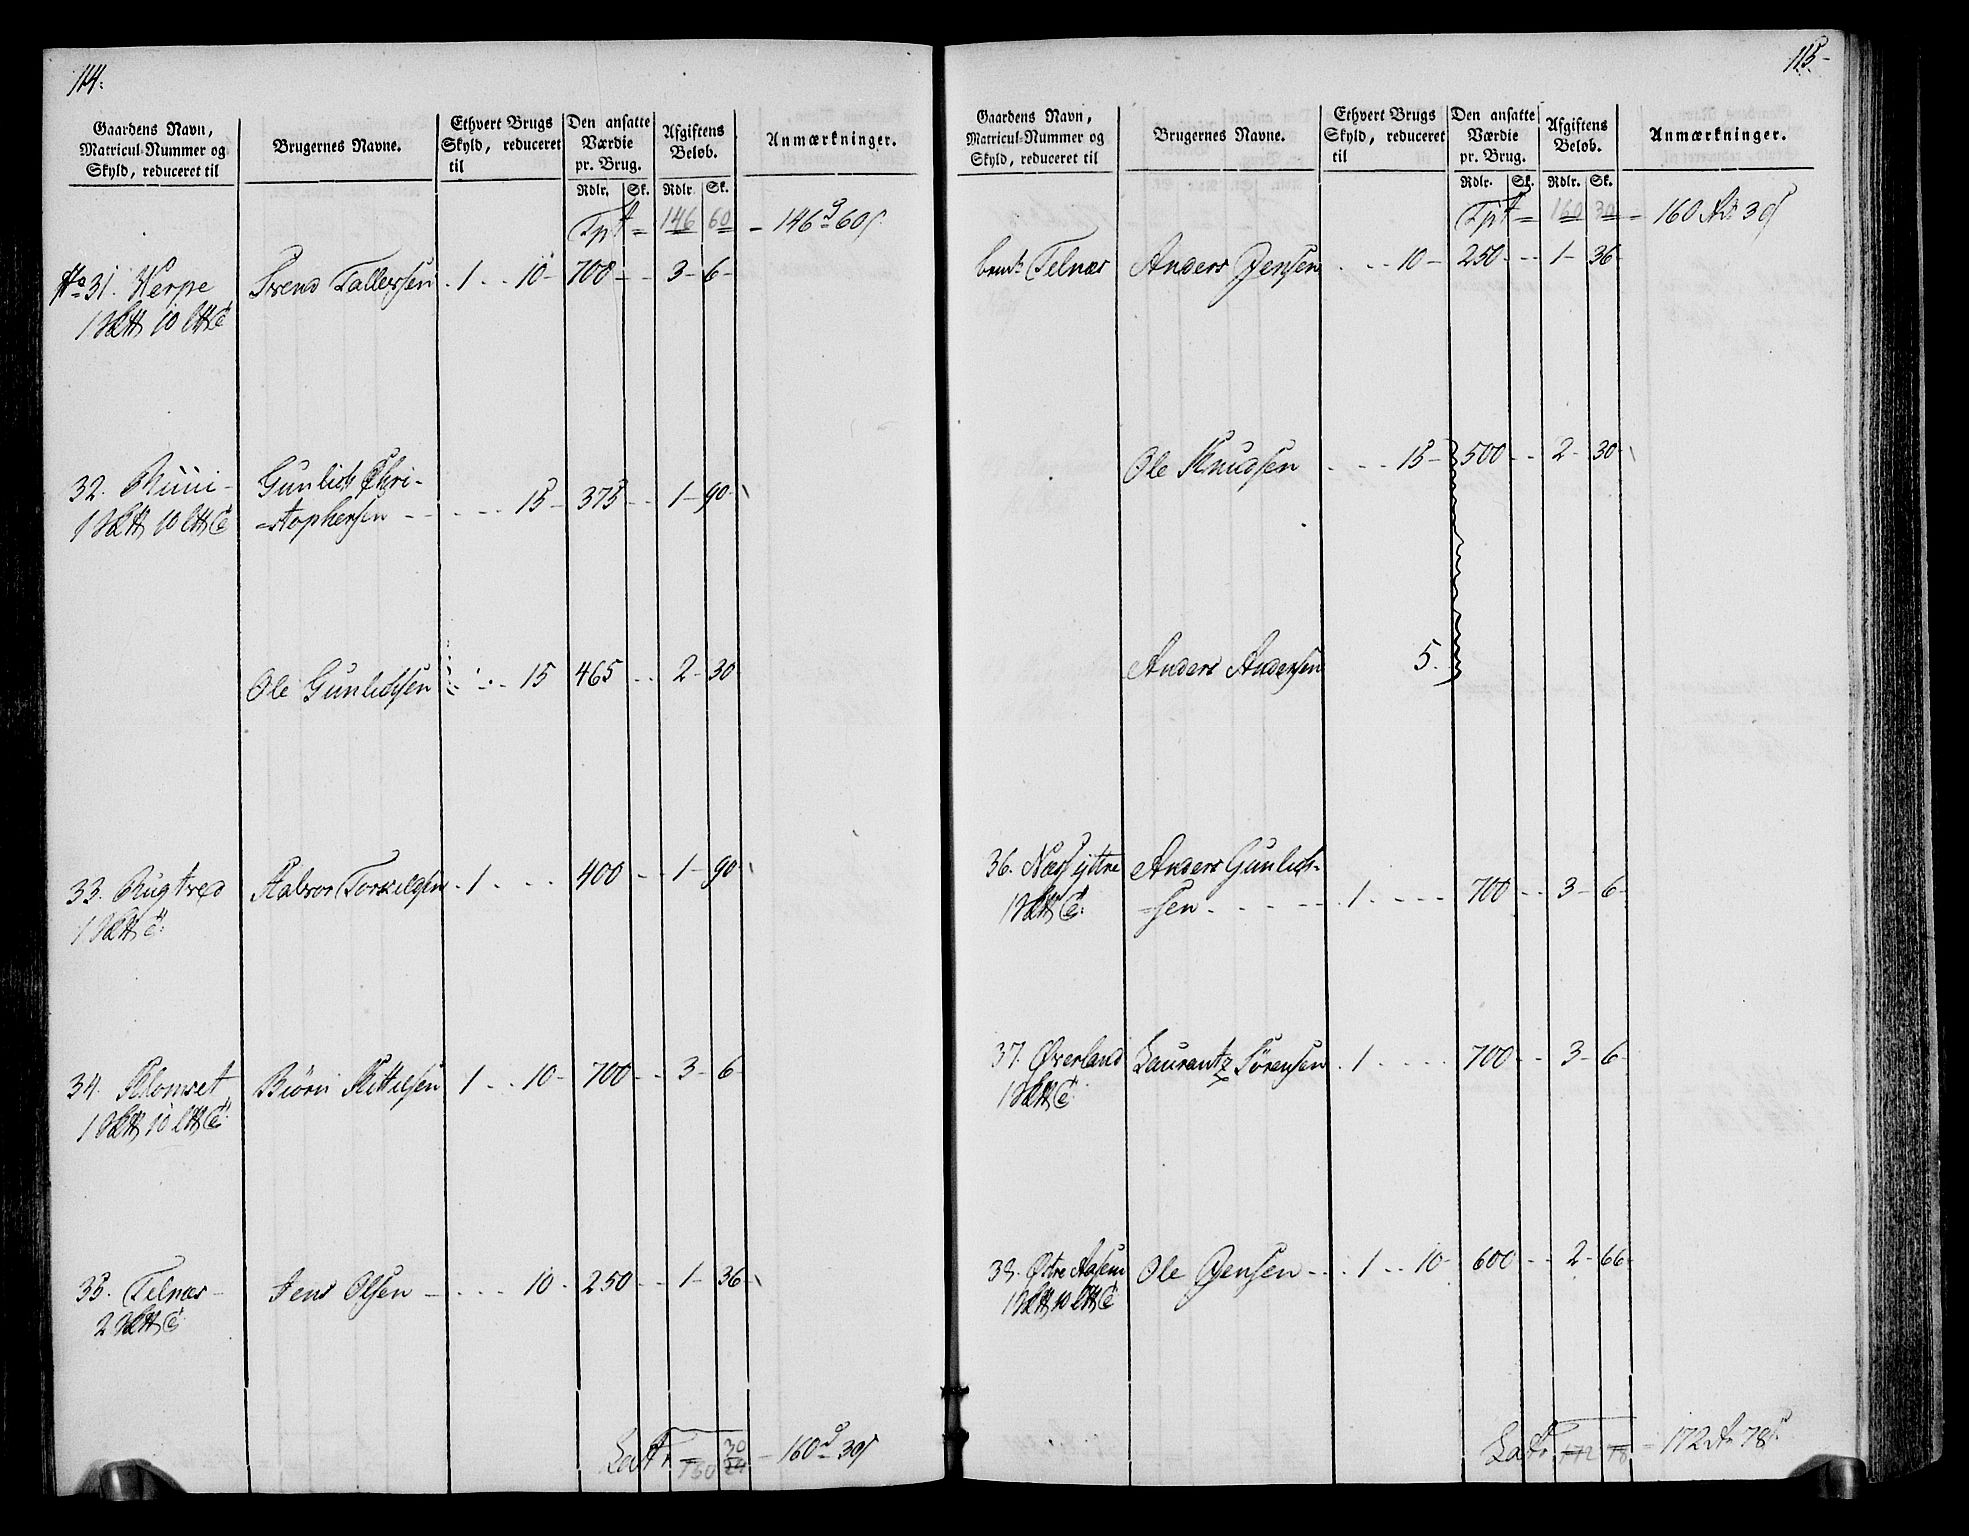 114.
Gaardens Navn, Matricul-Nummer og Skyld, reduceret til
Brugernes Navne.
Ethvert Brugs Skyld, reduceret til
Den ansatte Værdie pr. Brug.
Afgiftens Beløb.
Anmærkninger.
Rdlr. Sk. Rdlr. Sk.
Tpt = 146 60 = 146 60
No 31. Herpe Svend Tallevsen 1 10 700 3 6
32. Gunlich Chri-
-stophersen 15 375 1 90
Ole Gunlichsen 15 465 2 30
33. Rugtved Halvor Torkilsen 1 400 1 90
34. Klomset Biørn Kittelsen 1 10 700 3 6
35. Telnæs Jens Olsen 10 250 1 36
Latr 30 160 30
115
Gaardens Navn, Matricul-Nummer og Skyld, reduceret til
Brugernes Navne.
Ethvert Brugs Skyld, reduceret til
Den ansatte Værdie pr. Brug.
Afgiftens Beløb.
Anmærkninger.
Rdlr. Sk. Rdlr. Sk.
Tpt = 160 30 = 160 30
Telnæs Anders Jensen 10 250 1 36
Ole Knudsen 15 500 2 30
Anders Andersen 5
36. Næs yttre Anders Gunlich-
-sen 1 700 3 6
37. Øverland Laurantz Sørensen 1 700 3 6
Østre Aasum Ole Jensen 1 10 600 2 66
Latr 172 78 172 78